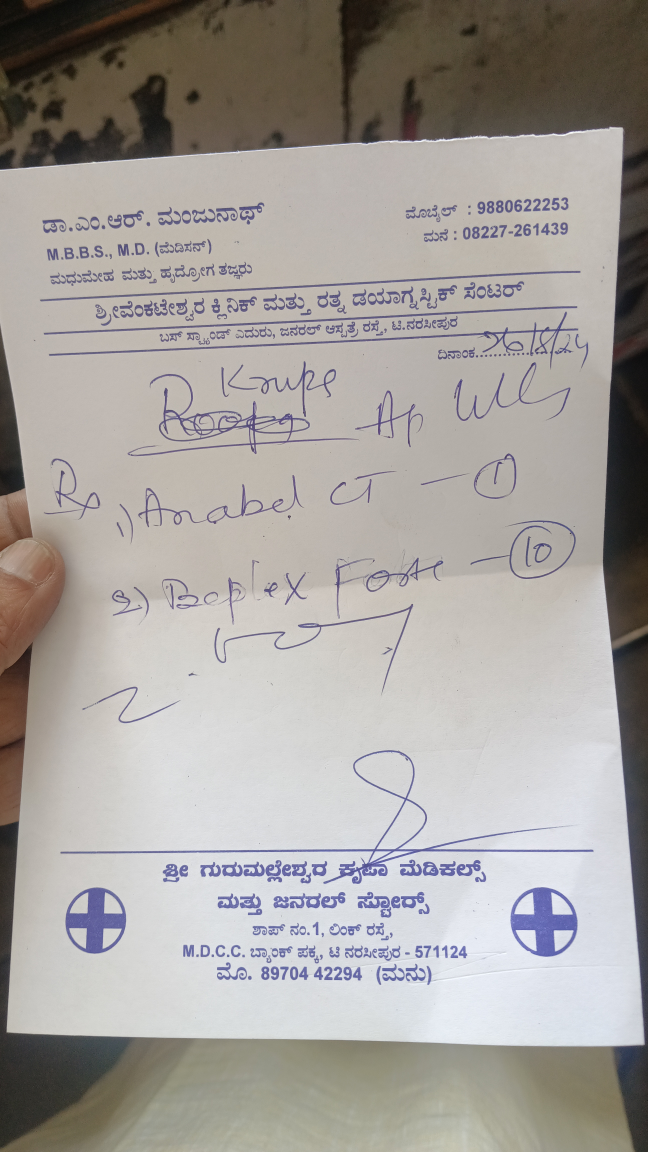 ಡಾ.ಎಂ.ಆರ್. ಮಂಜುನಾಥ್
ಮೊಬೈಲ್ : 9880622253
M.B.B.S., M.D. (ಮೆಡಿಸನ್)
ಮನೆ : 08227-261439
ಮಧುಮೇಹ ಮತ್ತು ಹೃದ್ರೋಗ ತಜ್ಞರು
ಶ್ರೀವೆಂಕಟೇಶ್ವರ ಕ್ಲಿನಿಕ್ ಮತ್ತು ರತ್ನ ಡಯಾಗ್ನಸ್ಟಿಕ್ ಸೆಂಟರ್
ಬಸ್ ಸ್ಟ್ಯಾಂಡ್ ಎದುರು, ಜನರಲ್ ಆಸ್ಪತ್ರೆ ರಸ್ತೆ, ಟಿ.ನರಸೀಪುರ
ದಿನಾಂಕ. 26/8/24
Krupa
Rx 1) Anabel CT - 1
2) Beplex Forte - 10
ಶ್ರೀ ಗುರುಮಲ್ಲೇಶ್ವರ ಕೃಪಾ ಮೆಡಿಕಲ್ಸ್
ಮತ್ತು ಜನರಲ್ ಸ್ಟೋರ್ಸ್
ಶಾಪ್ ನಂ.1, ಲಿಂಕ್ ರಸ್ತೆ,
M.D.C.C. ಬ್ಯಾಂಕ್ ಪಕ್ಕ, ಟಿ ನರಸೀಪುರ - 571124
ಮೊ. 89704 42294 (ಮನು)